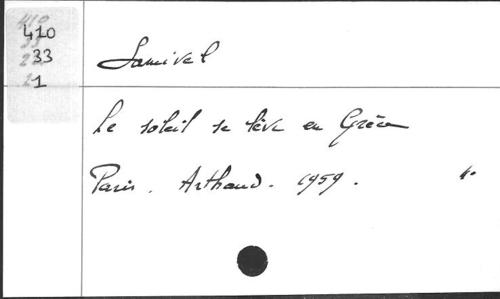 410
33
1
Samivel
Le soleil se lève en Grèce
Paris. Arthaud. 1959.